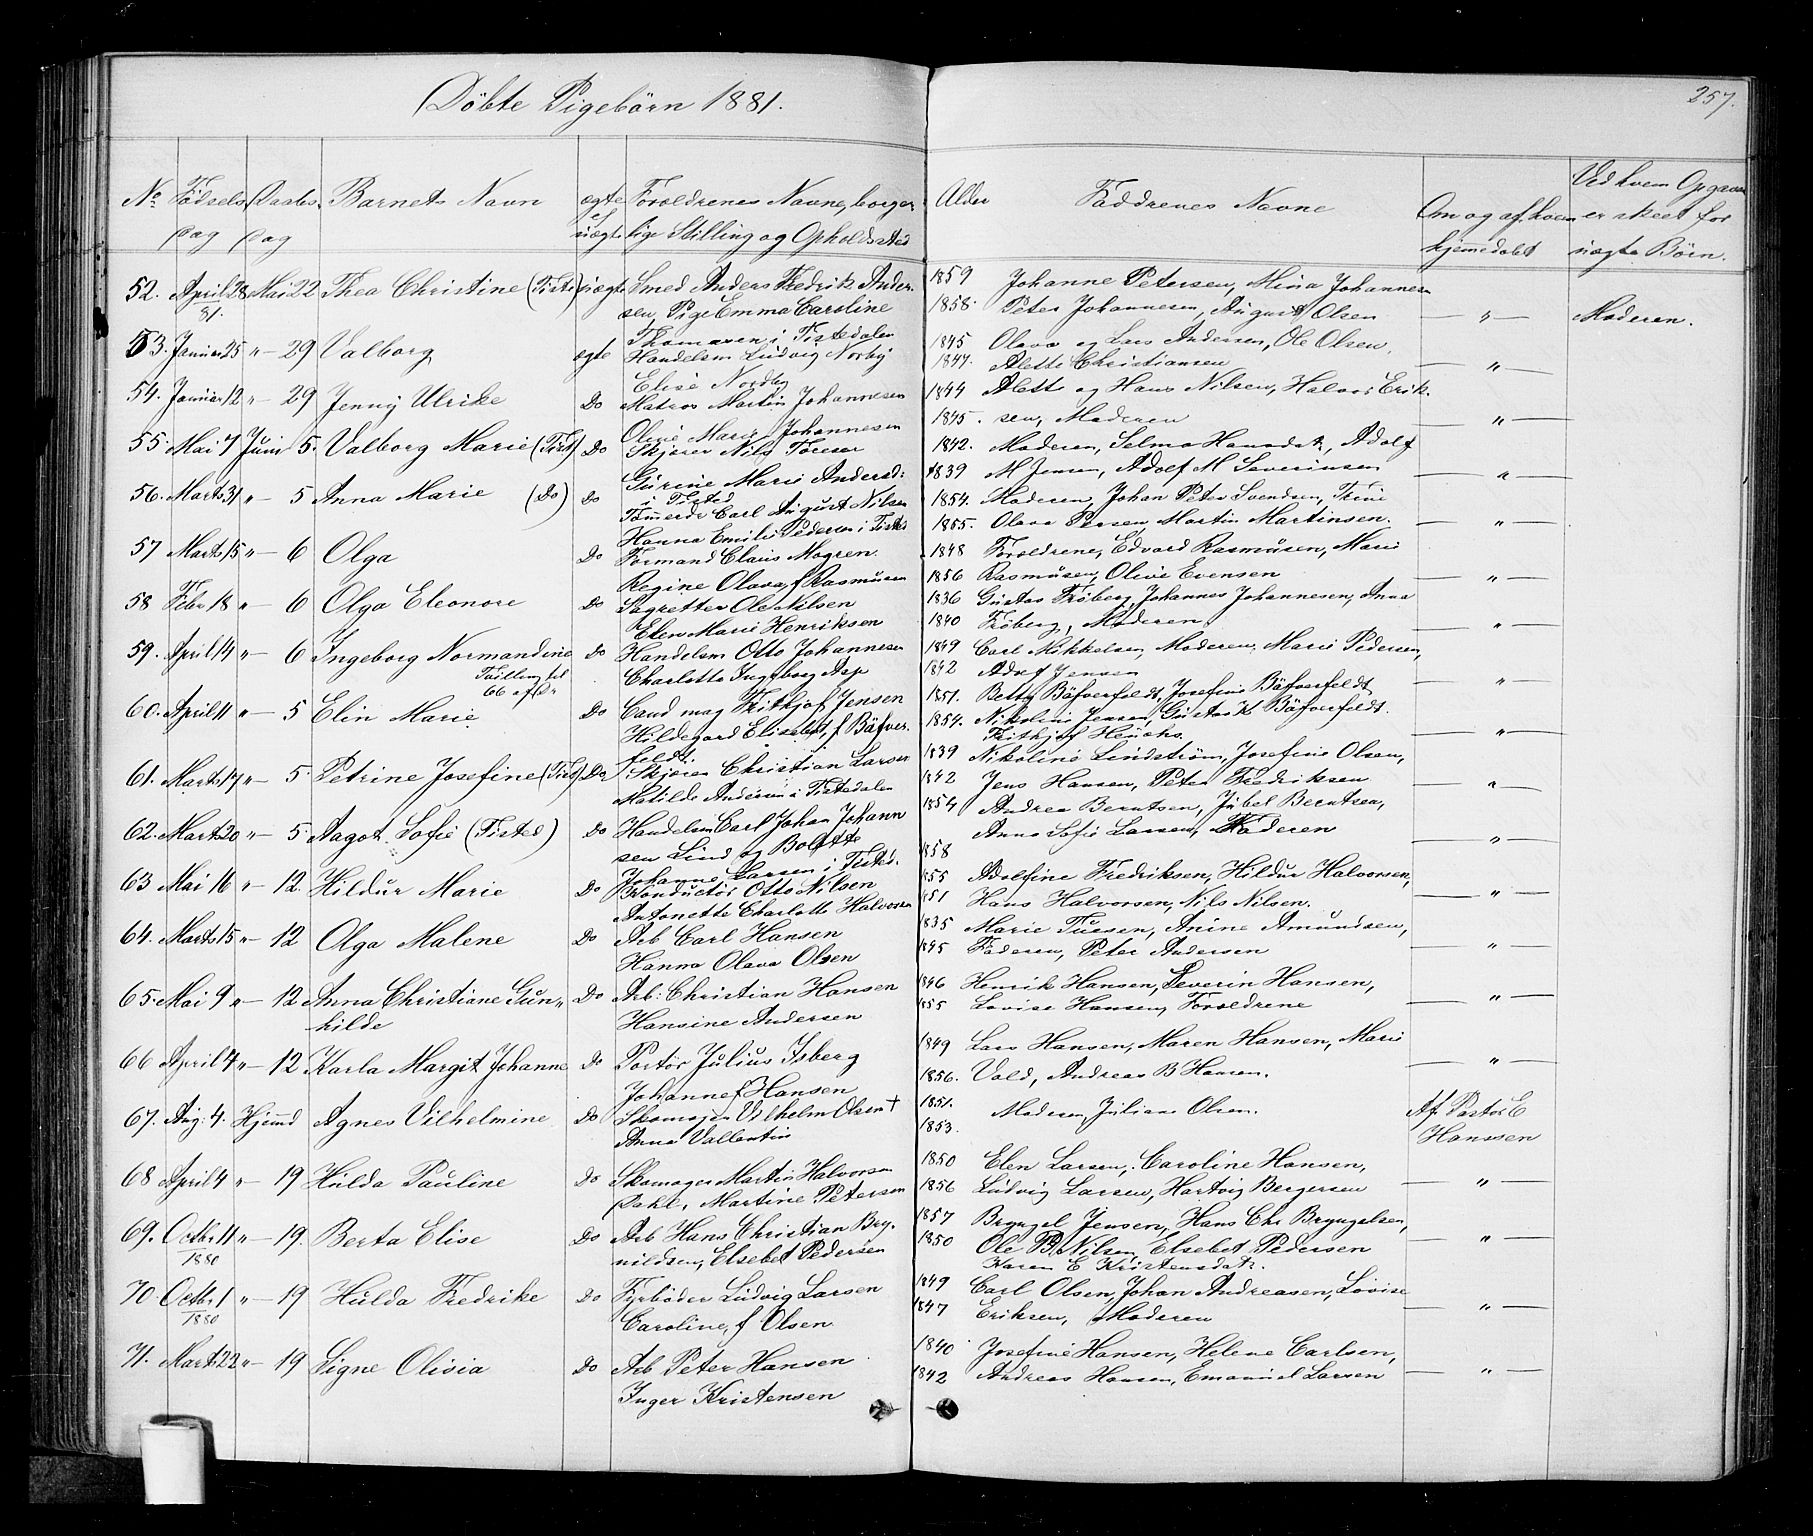 Döbte Pigebörn 1881.
257.
No Födsels Daabs Barnets Navn ægte Forældrenes Navne, borger Alder Faddrenes Navne Om og af hvem Ved hvem Opgaven
Dag Dag uægte lige Stilling og Opholdssted hjemmedøbt er skeet for
uægte Börn.
52. April 28 Mai 22 Thea Christine (Tisted) uægte Smed Anders Fredrik Ander- 1859 Johanne Petersen, Mina Johannesen
81. sen, Pige Emma Caroline 1858. Peter Johannesen, August Olsen — " — Moderen.
Thomasen i Tistedalen
53. Januar 25 " — 29 Valborg ægte Handelsm Ludvig Norby 1845 Olava og Lars Andersen, Ole Olsen,
Elise Nordby 1847. Alette Christiansen — " —
54. Januar 12 " — 29 Jenny Ulrike Do Matros Martin Johannesen 1844 Alette og Hans Nilsen, Halvor Erik-
Oline Marie Johannesen 1845. sen, Moderen — " —
55. Mai 7 Juni 5. Valborg Marie (Tisted) Do Skjærer Nils Toreser 1842. Moderen, Selma Hansdatr, Adolf
Gurine Marie Andersd: 1839 M Jensen, Adolf M Severinsen — " —
i Tisted
56. Marts 31 " — 5 Anna Marie (Do) Do Tømmerdr Carl August Nilsen 1854. Moderen, Johan Peter Svendsen, Trine
Hanna Emilie Pedersen i Tisted 1855. Olava Persen, Martin Martinsen. — " —
57 Marts 15 " — 6 Olga Do Formand Claus Mogren. 1848 Forældrene, Edvard Rasmusen, Marie
Regine Olava f Rasmusen 1856 Rasmusen, Olive Evensen — " —
58 Febr 18 " — 6 Olga Eleonore Do Sagretter Ole Nilsen 1836 Gustav Fröberg, Johannes Johannesen, Anna
Elen Marie Henriksen 1840 Fröberg, Moderen — " —
59. April 14 " — 6 Ingeborg Normandine Do Handelsm Otto Johannesen 1849 Carl Mikkelsen, Moderen, Marie Pedersen,
Charlotte Ingeborg Asp 1842 Adolf Jensen — " —
60. April 11 " — 5 Elin Marie Do Cand mag Frithjof Jensen 1851. Betty Bäfverfeldt, Josefine Bäfverfeldt
Hildegard Elisabet, f Bäfver- 1854. Nikoline Jensen, Gustav K Bäfverfeldt.
feldt. Frithjof Heuchs. — " —
61. Marts 17 " — 5. Petrine Josefine (Tisted) Do Skjærer Christian Larsen 1839 Nikoline Lindström, Josefine Olsen,
Matilde Andersen i Tistedalen 1842 Jens Hansen, Peter Fredriksen — " —
62. Marts 20 " — 5. Aagot Sofie (Tisted) Do Handelsm Carl Johan Johann 1854 Andrea Berntsen, Jubel Berntsen,
sen Lind og Bolette 1858 Anna Sofie Larsen, Moderen — " —
Johanne Larsen i Tisted.
63 Mai 16 " — 12. Hildur Marie Do Konductör Otto Nilsen 1855 Adolfine Fredriksen, Hildur Halvorsen,
Antonette Charlotte Halvorsen 1851 Hans Halvorsen, Nils Nilsen. — " —
64. Marts 15 " — 12 Olga Malene Do Arb Carl Hansen 1835 Marie Tuesen, Anine Amundsen,
Hanna Olava Olsen 1845 Faderen, Peter Andersen — " —
65. Mai 9 " — 12 Anna Christiane Gun- Do Arb: Christian Hansen 1846 Henrik Hansen, Severin Hansen,
hilde Hansine Andersen 1855 Lovise Hansen, Forældrene — " —
66 April 4 " — 12 Karla Margit Johanne Do Portör Julius Isberg 1849 Lars Hansen, Maren Hansen, Marie
Johanne f Hansen 1856. Vold, Andreas B Hansen. — " —
67. Aug. 4. Hjemd Agnes Vilhelmine Do Skomager Vilhelm Olsen † 1851. Moderen, Julian Olsen. Af Pastor E
Anna Vallentin 1853. Hanssen
68 April 4 " — 19 Hulda Pauline Do Skomager Martin Halvorsen 1850 Elen Larsen, Caroline Hansen,
Dahl, Martine Petersen 1856 Ludvig Larsen, Hartvig Bergersen — " —
69. Octbr 11 " — 19. Berta Elise Do Arb Hans Christian Bry- 1857 Bryngel Jensen, Hans Chr Bryngelsen,
1880 nildsen, Elsebet Pedersen 1850 Ole B. Nilsen, Elsebet Pedersen — " —
Karen E Kristensdatr.
70. Octbr 1 " — 19 Hulda Fredrike Do Fyrböder Ludvig Larsen 1849 Carl Olsen, Johan Andreasen, Lovise
1880 Caroline, f Olsen 1847 Eriksen, Moderen — " —
71. Marts 22 " — 19 Signe Olivia Do Arb Peter Hansen 1840 Josefine Hansen, Helene Carlsen,
Inger Kristensen 1842 Andreas Hansen, Emanuel Larsen — " —